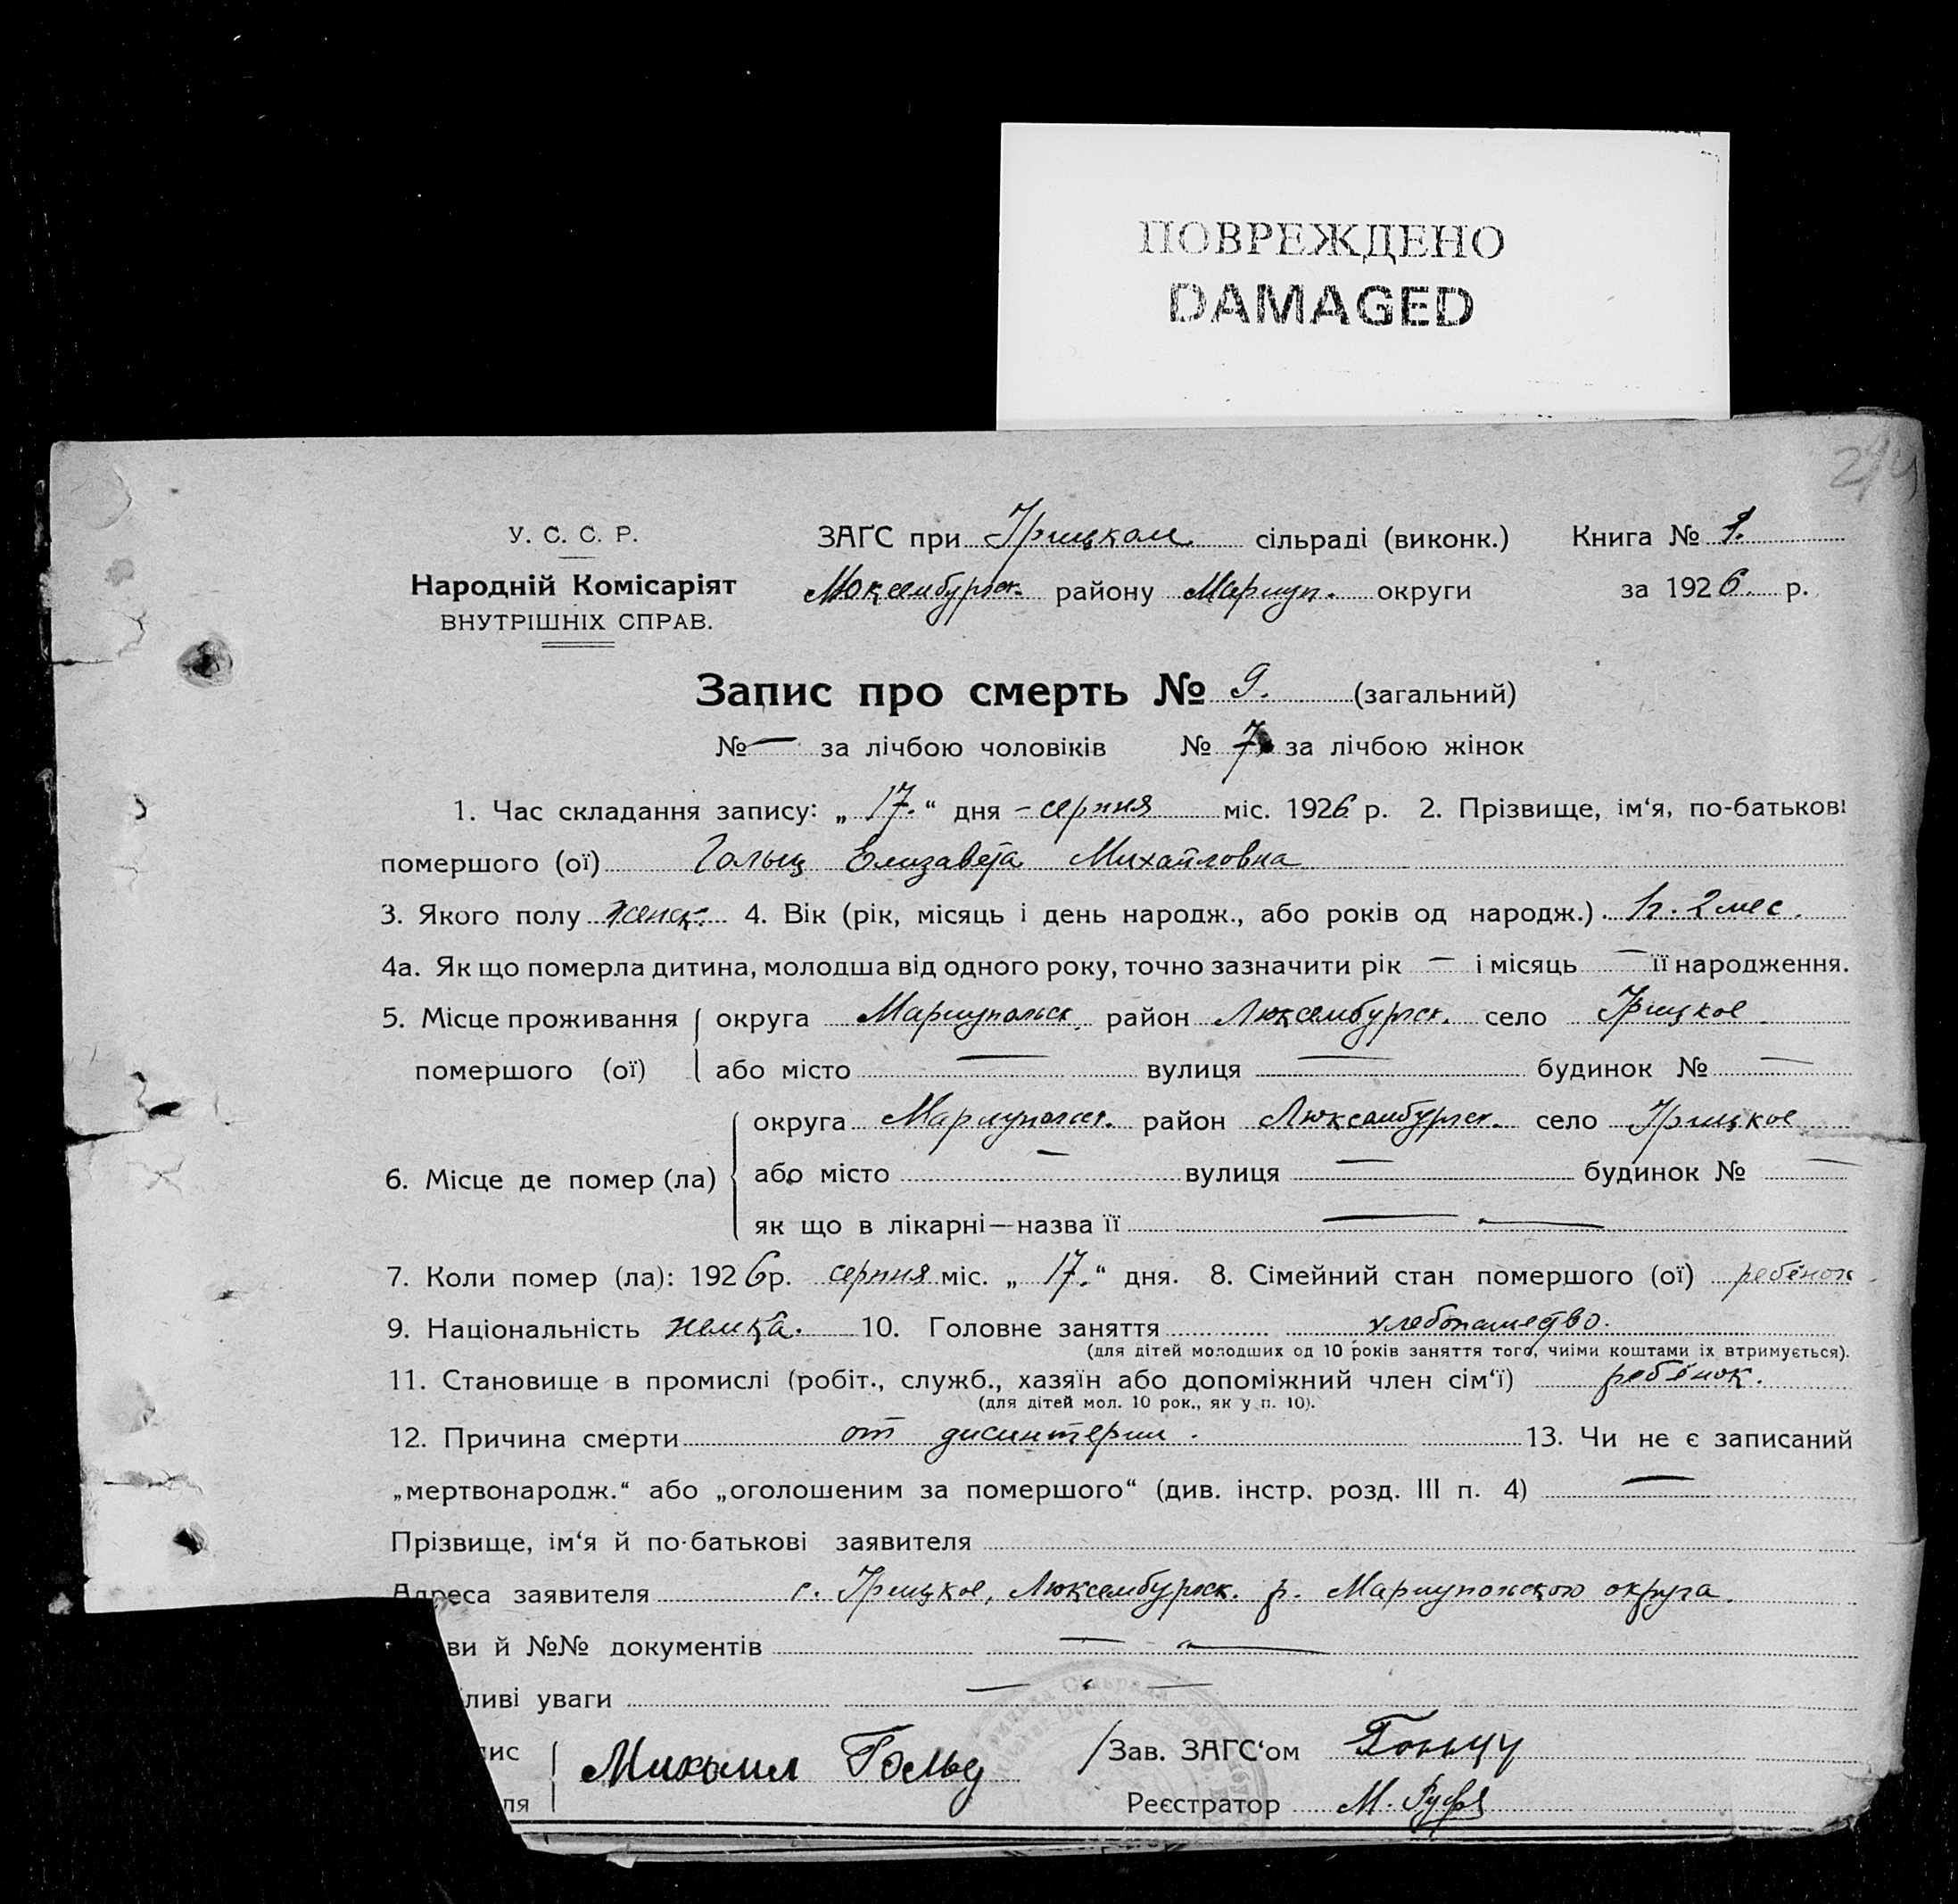 ПОВРЕЖДЕНО
DAMAGED
У. С. С. Р.
Народній Комісаріят
ВНУТРІШНІХ СПРАВ.
ЗАГС при Грицком сільраді (виконк.) Книга № 1.
Люксембургск. району Мариуп. округи за 1926 р.
Запис про смерть № 9. (загальний)
№ — за лічбою чоловіків № 7 за лічбою жінок
1. Час складання запису: „17.“ дня – серпня міс. 1926 р. 2. Прізвище, ім‘я, по-батькові
помершого (ої) Гольц Елизавета Михайловна
3. Якого полу женск. 4. Вік (рік, місяць і день народж., або років од народж.). 1г. 2 мес.
4а. Як що померла дитина, молодша від одного року, точно зазначити рік — і місяць — її народження.
5. Місце проживання округа Мариупольск. район Люксембургск. село Грицкое.
помершого (ої) або місто — вулиця — будинок № —
округа Мариупольск. район Люксембургск. село Грицкое
6. Місце де помер (ла) або місто — вулиця — будинок № —
як що в лікарні—назва її — —
7. Коли помер (ла): 1926р. серпня міс. „17.“ дня. 8. Сімейний стан помершого (ої) ребёнок
9. Національність немка. 10. Головне заняття хлебопашество.
(для дітей молодших од 10 років заняття того, чиіми коштами іх втримується).
11. Становище в промислі (робіт., служб., хазяїн або допоміжний член сім‘ї) ребёнок.
(для дітей мол. 10 рок., як у п. 10).
12. Причина смерти от дисинтерии. 13. Чи не є записаний
„мертвонародж.“ або „оголошеним за помершого“ (див. інстр. розд. III п. 4) —
Прізвище, ім‘я й по-батькові заявителя
Адреса заявителя с. Грицкое, Люксембургск. р. Мариупольского округа.
ви й №№ документів — —
ливі уваги — —
ис Михаил Гольц / Зав. ЗАГС‘ом
ля Реєстратор М.